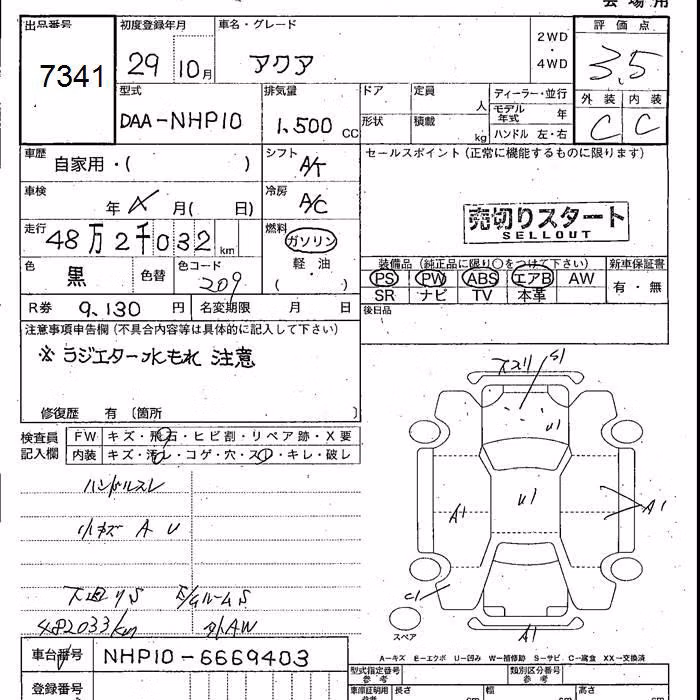 出品番号 初度登録年月 車名・グレード 2WD・4WD 評価点
7341 29 10月 アクア 3.5
外装 内装
C C
型式 排気量 ドア 定員 人 ディーラー・並行
DAA-NHP10 1.500 CC 形状 積載 kg モデル年式 年
ハンドル 左・右
車歴 自家用・( ) シフト A/T セールスポイント(正常に機能するものに限ります)
車検 年 月( 日) 冷房 A/C
売切りスタート
SELLOUT
走行 48万2千032 km 燃料 ガソリン・軽・油 ( )
色 黒 色替 色コード 209
装備品(純正品に限り○をつけて下さい) 新車保証書
PS PW ABS エアB AW 有・無
SR ナビ TV 本革
R券 9,130 円 名変期限 月 日 後日品
注意事項申告欄(不具合内容等は具体的に記入して下さい)
※ ラジエター水もれ 注意
修復歴 有〔箇所 〕
検査員記入欄 FW キズ・飛石・ヒビ割・リペア跡・X要
内装 キズ・汚レ・コゲ・穴・スレ・キレ・破レ
ハンドルスレ
小キズ A U
下廻りS E/Gルーム S
482033km 外AW
S1
U1
U1
A1
A1
C1
A1
スペア
A-キズ E-エクボ U-凹み W-補修跡 S-サビ C-腐食 XX-交換済
車台番号 NHP10-6669403 型式指定番号 参考 類別区分番号 参考
登録番号 車庫証明用 参考 長さ 幅 高さ